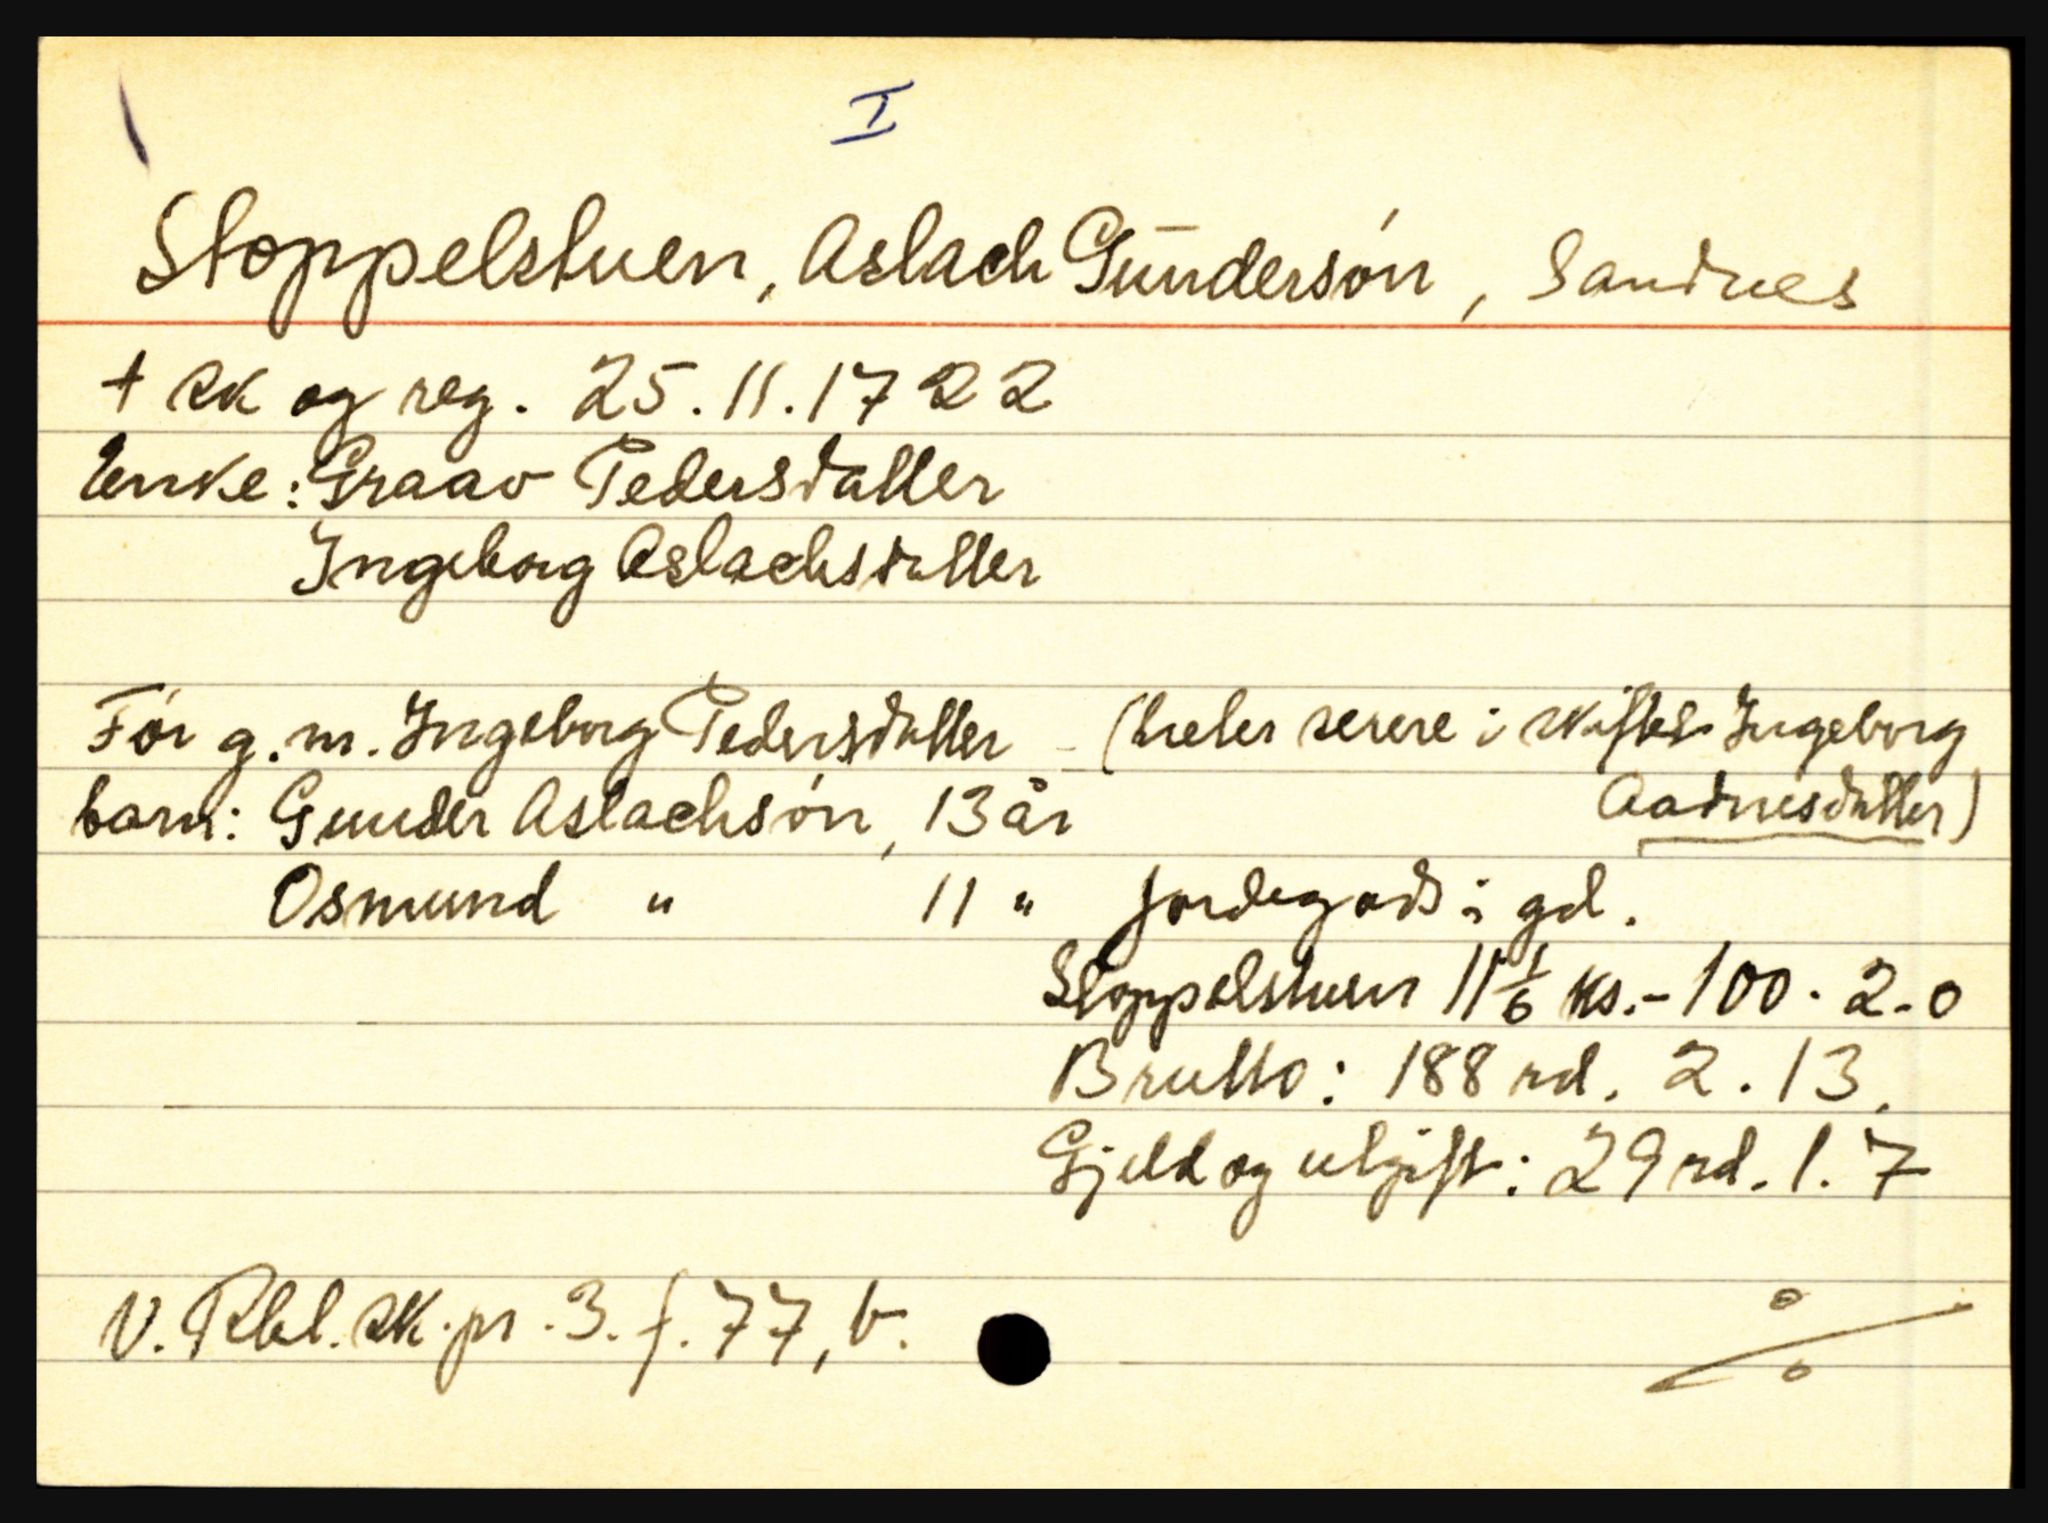 I
Stoppelstuen, Aslach Gundersøn, Sandnes
+ sk og reg. 25.11.1722
Enke: Graav Pedersdatter
Ingeborg Aslachsdatter
Før g.m. Ingeborg Pedersdatter - (heter senere i skiftet Ingeborg
Aadnesdatter)
barn: Gunder Aslachsøn, 13 år
Osmund " 11 " jordegods i gd.
Stoppelstuen 11 1/6 ks.- 100. 2. 0
Brutto: 188 rd. 2. 13.
Gjeld og utgift: 29 rd. 1. 7
V. Rbl. sk. pr. 3. f. 77, b.